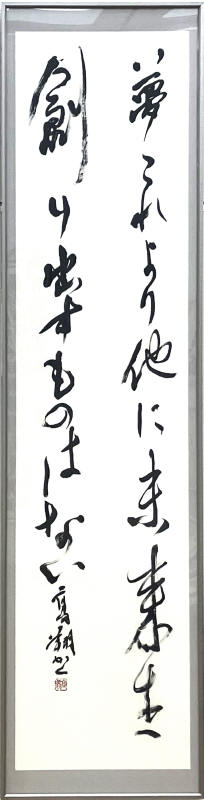 夢これより他に未来を
創り出すものはない